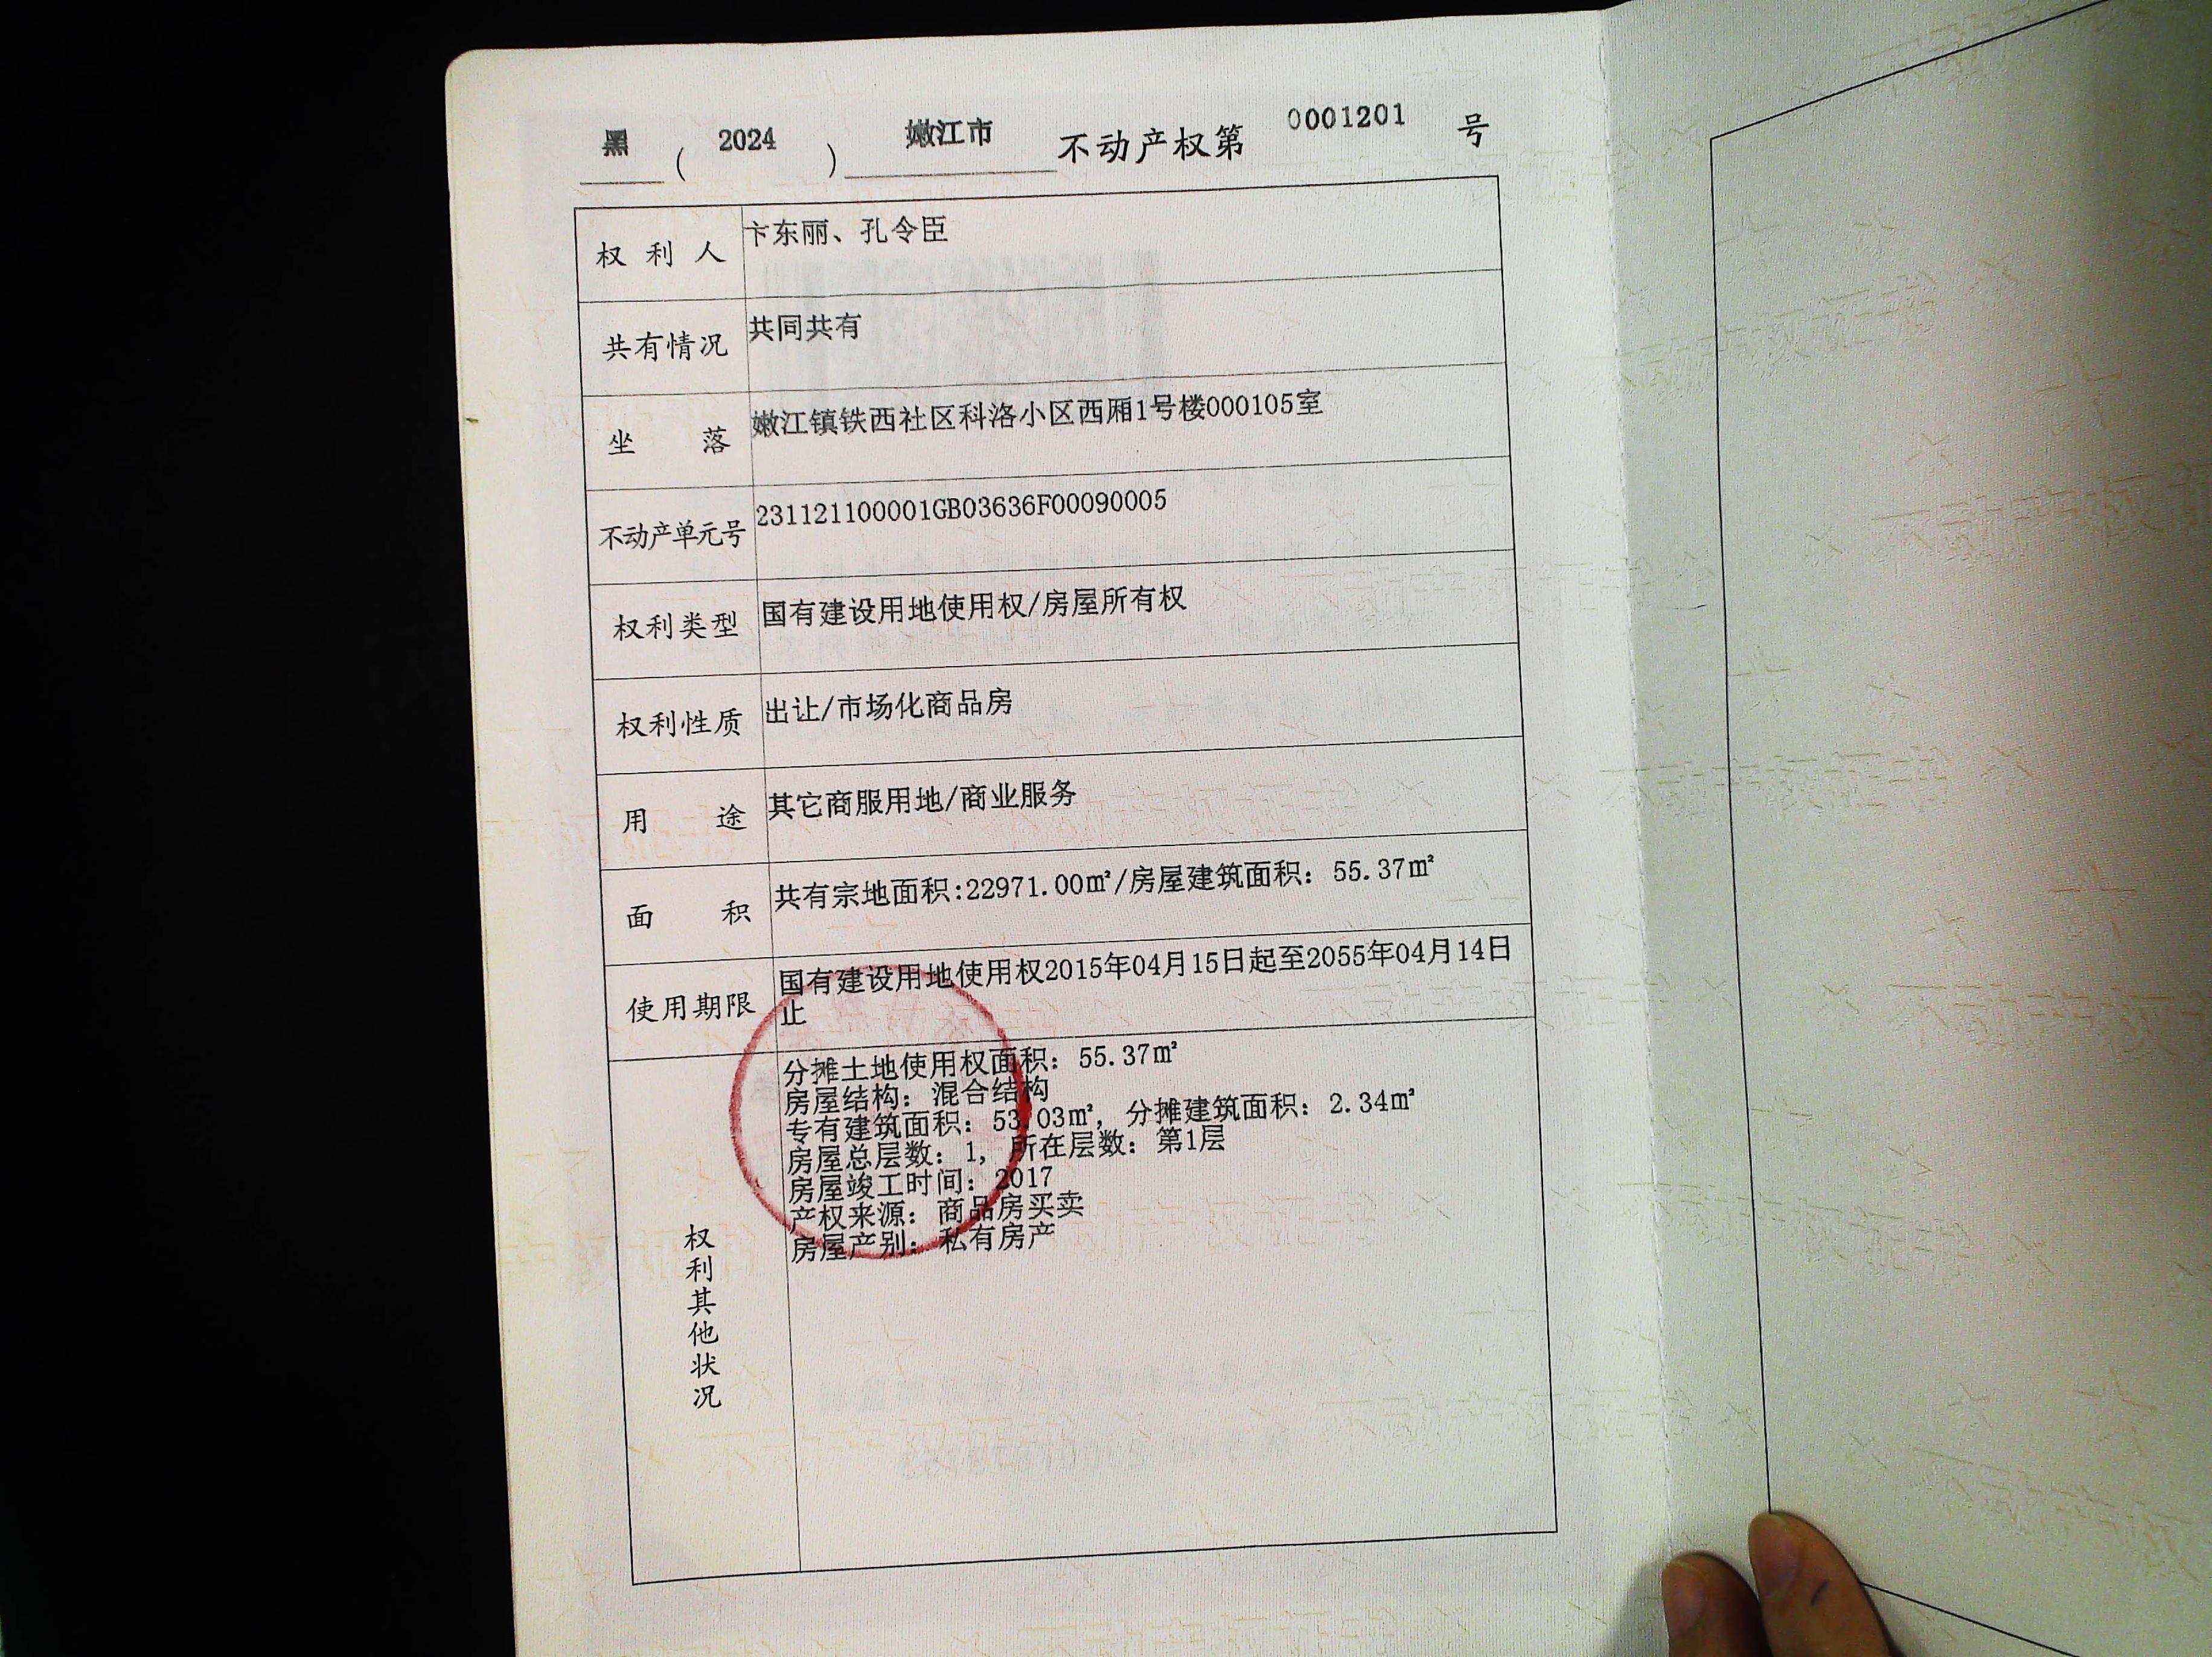 黑 ( 2024 ) 嫩江市 不动产权第 0001201 号
权利人 卞东丽、孔令臣
共有情况 共同共有
坐落 嫩江镇铁西社区科洛小区西厢1号楼000105室
不动产单元号 231121100001GB03636F00090005
权利类型 国有建设用地使用权/房屋所有权
权利性质 出让/市场化商品房
用途 其它商服用地/商业服务
面积 共有宗地面积:22971.00㎡/房屋建筑面积：55.37㎡
使用期限 国有建设用地使用权2015年04月15日起至2055年04月14日
止
权利其他状况
分摊土地使用权面积：55.37㎡
房屋结构：混合结构
专有建筑面积：53.03㎡，分摊建筑面积：2.34㎡
房屋总层数：1，所在层数：第1层
房屋竣工时间：2017
产权来源：商品房买卖
房屋产别：私有房产